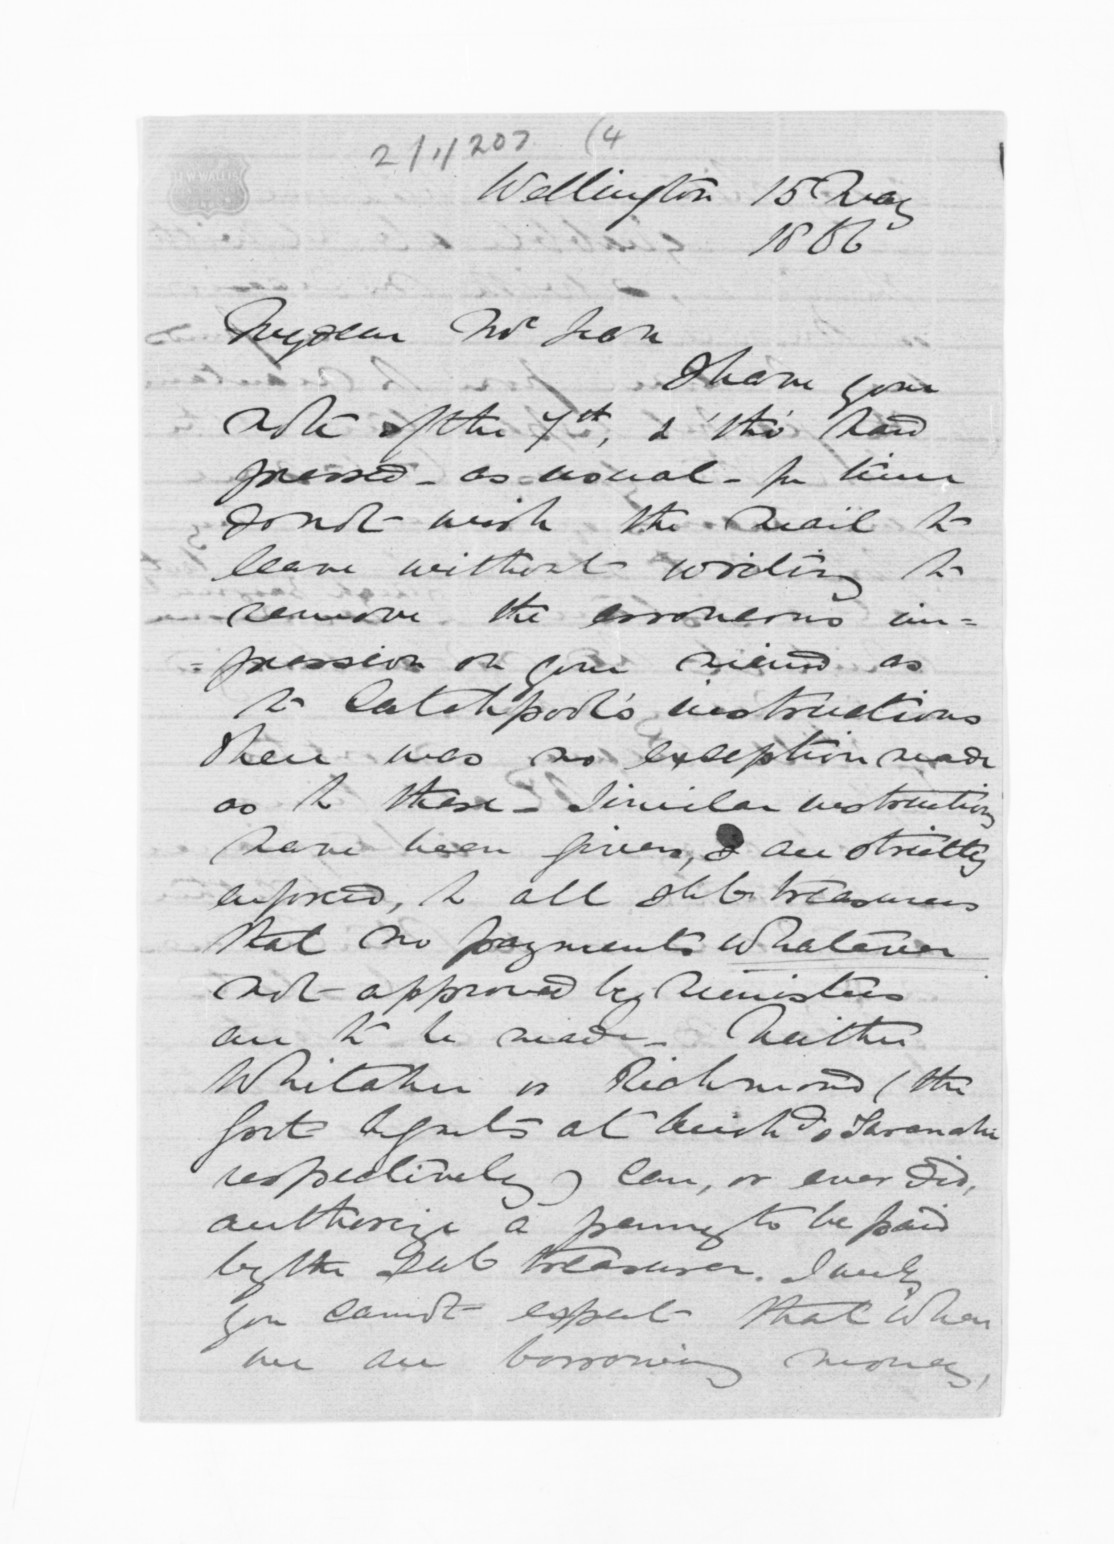 2/1/207 (4
Wellington 15 May
1866
My dear McLean
I have your
note of the 7th, & tho' hard
pressed - as usual - for time
do not wish the mail to
leave without writing to
remove the erroneous im=
=pression on your mind as
to Catchpool's instructions
there was no exception made
as to these - Similar instructions
have been given, & are strictly
enforced, to all Sub treasurers
that no payments whatever
not approved by Ministers
are to be made - Neither
Whitaker or Richmond (the
Govt Agents at Auckd & Taranaki
respectively) can, or ever did,
authorize a penny to be paid
by the Sub treasurer. Surely
you cannot expect that when
we are borrowing money,